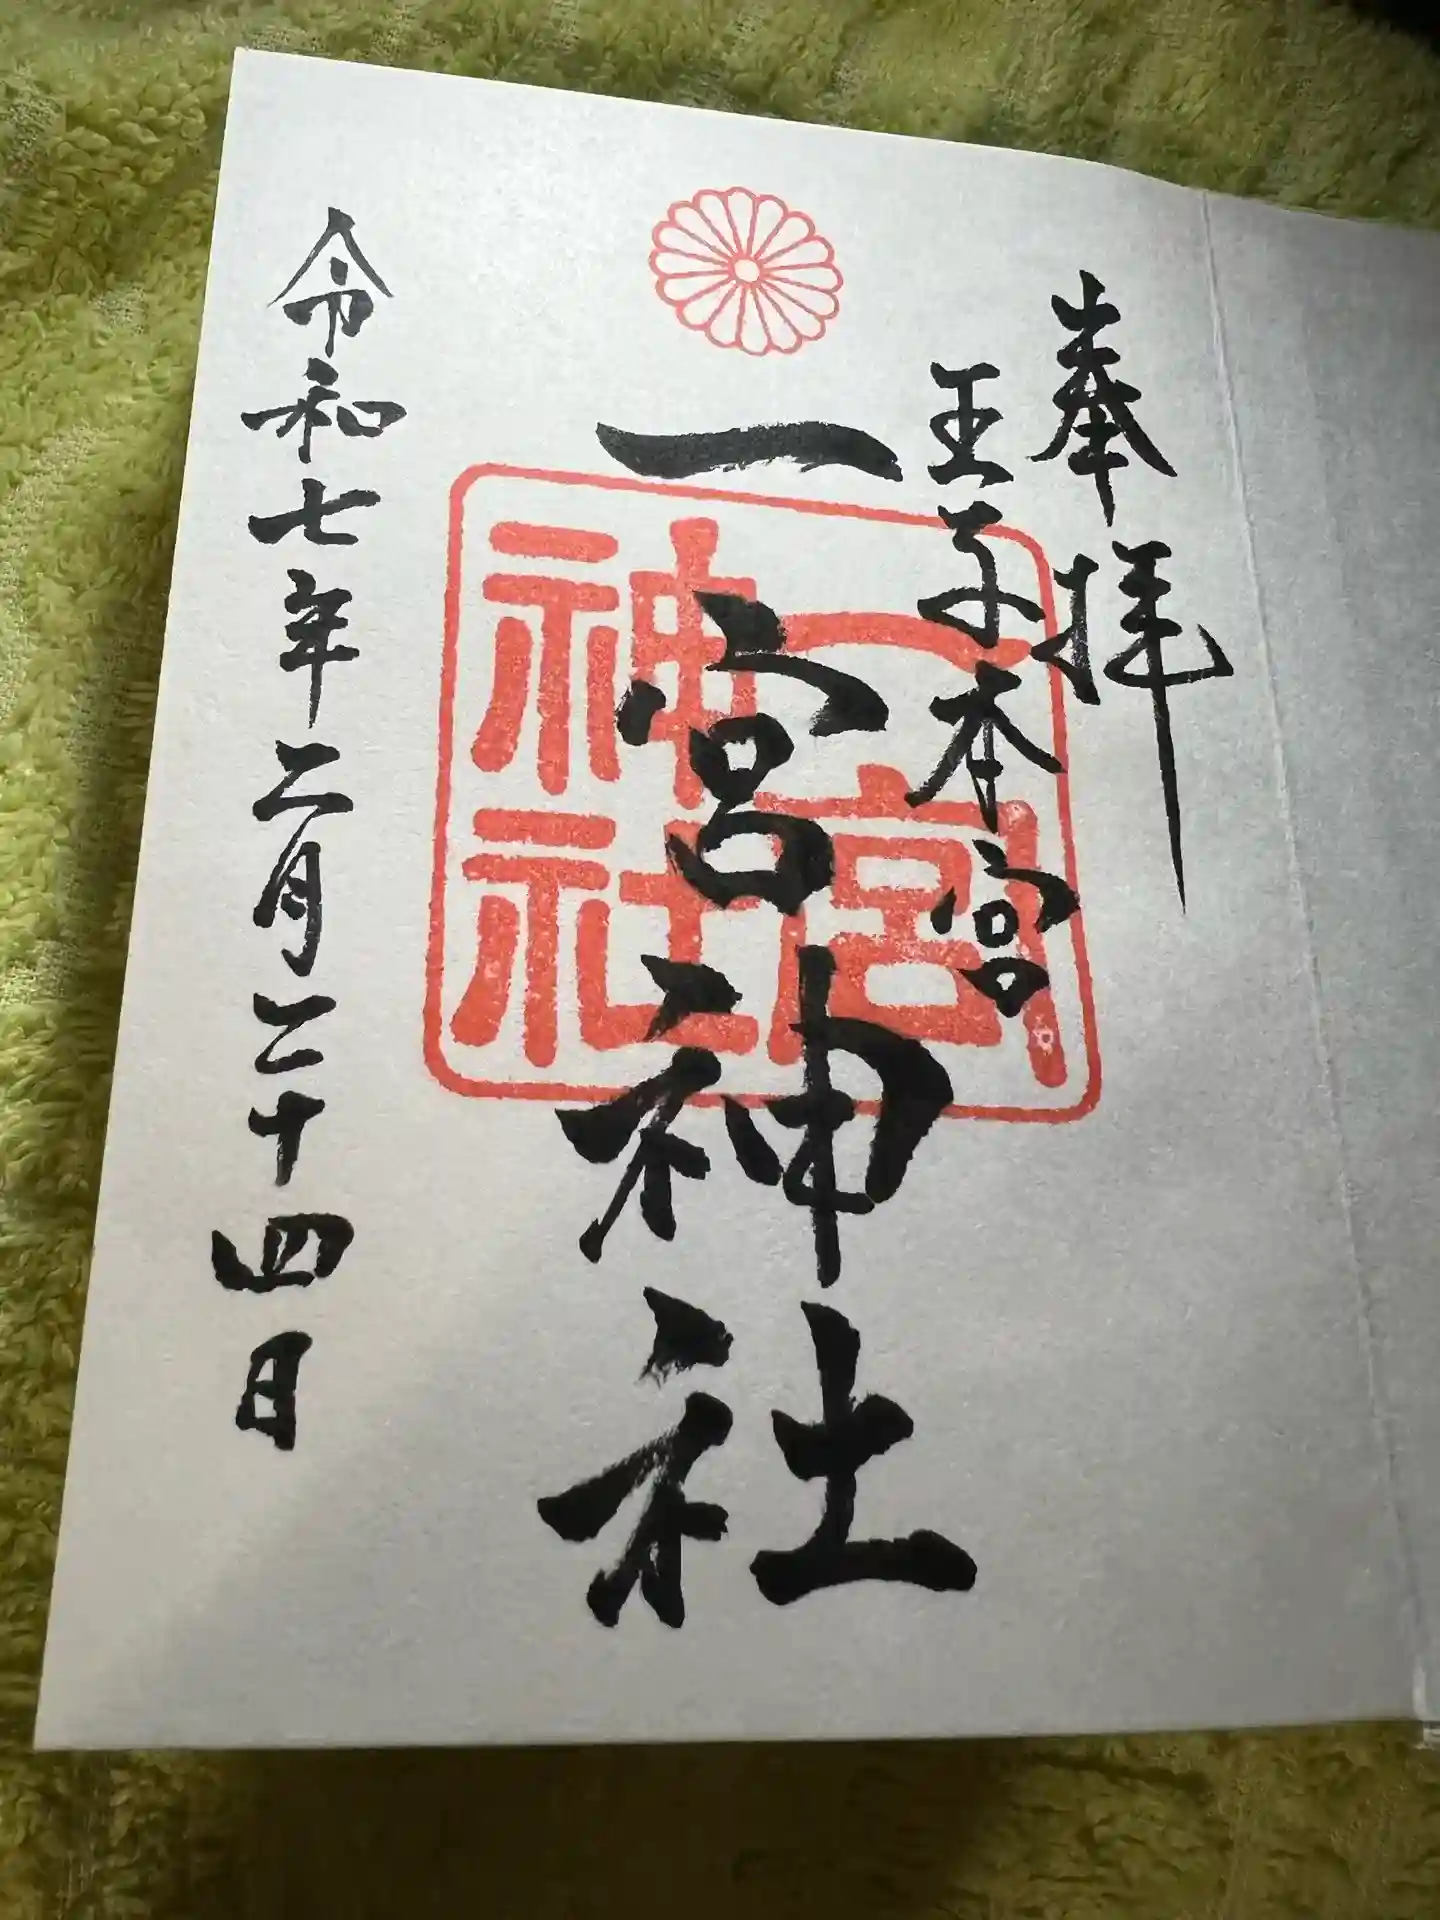 奉拝
王子本宮
一宮神社
一宮
神社
令和七年二月二十四日